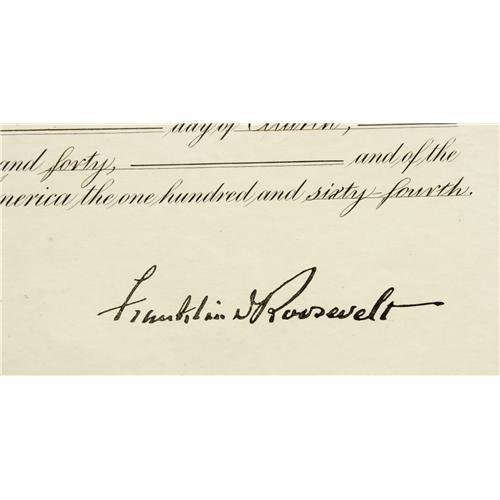 day of March,
and forty, and of the
merica the one hundred and sixty-fourth.
Franklin D Roosevelt